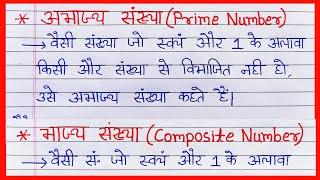 * अभाज्य संख्या (Prime Number)
→ वैसी संख्या जो स्वयं और 1 के अलावा
किसी और संख्या से विभाजित नही हो,
उसे अभाज्य संख्या कहते हैं।
* भाज्य संख्या (Composite Number)
→ वैसी सं॰ जो स्वयं और 1 के अलावा